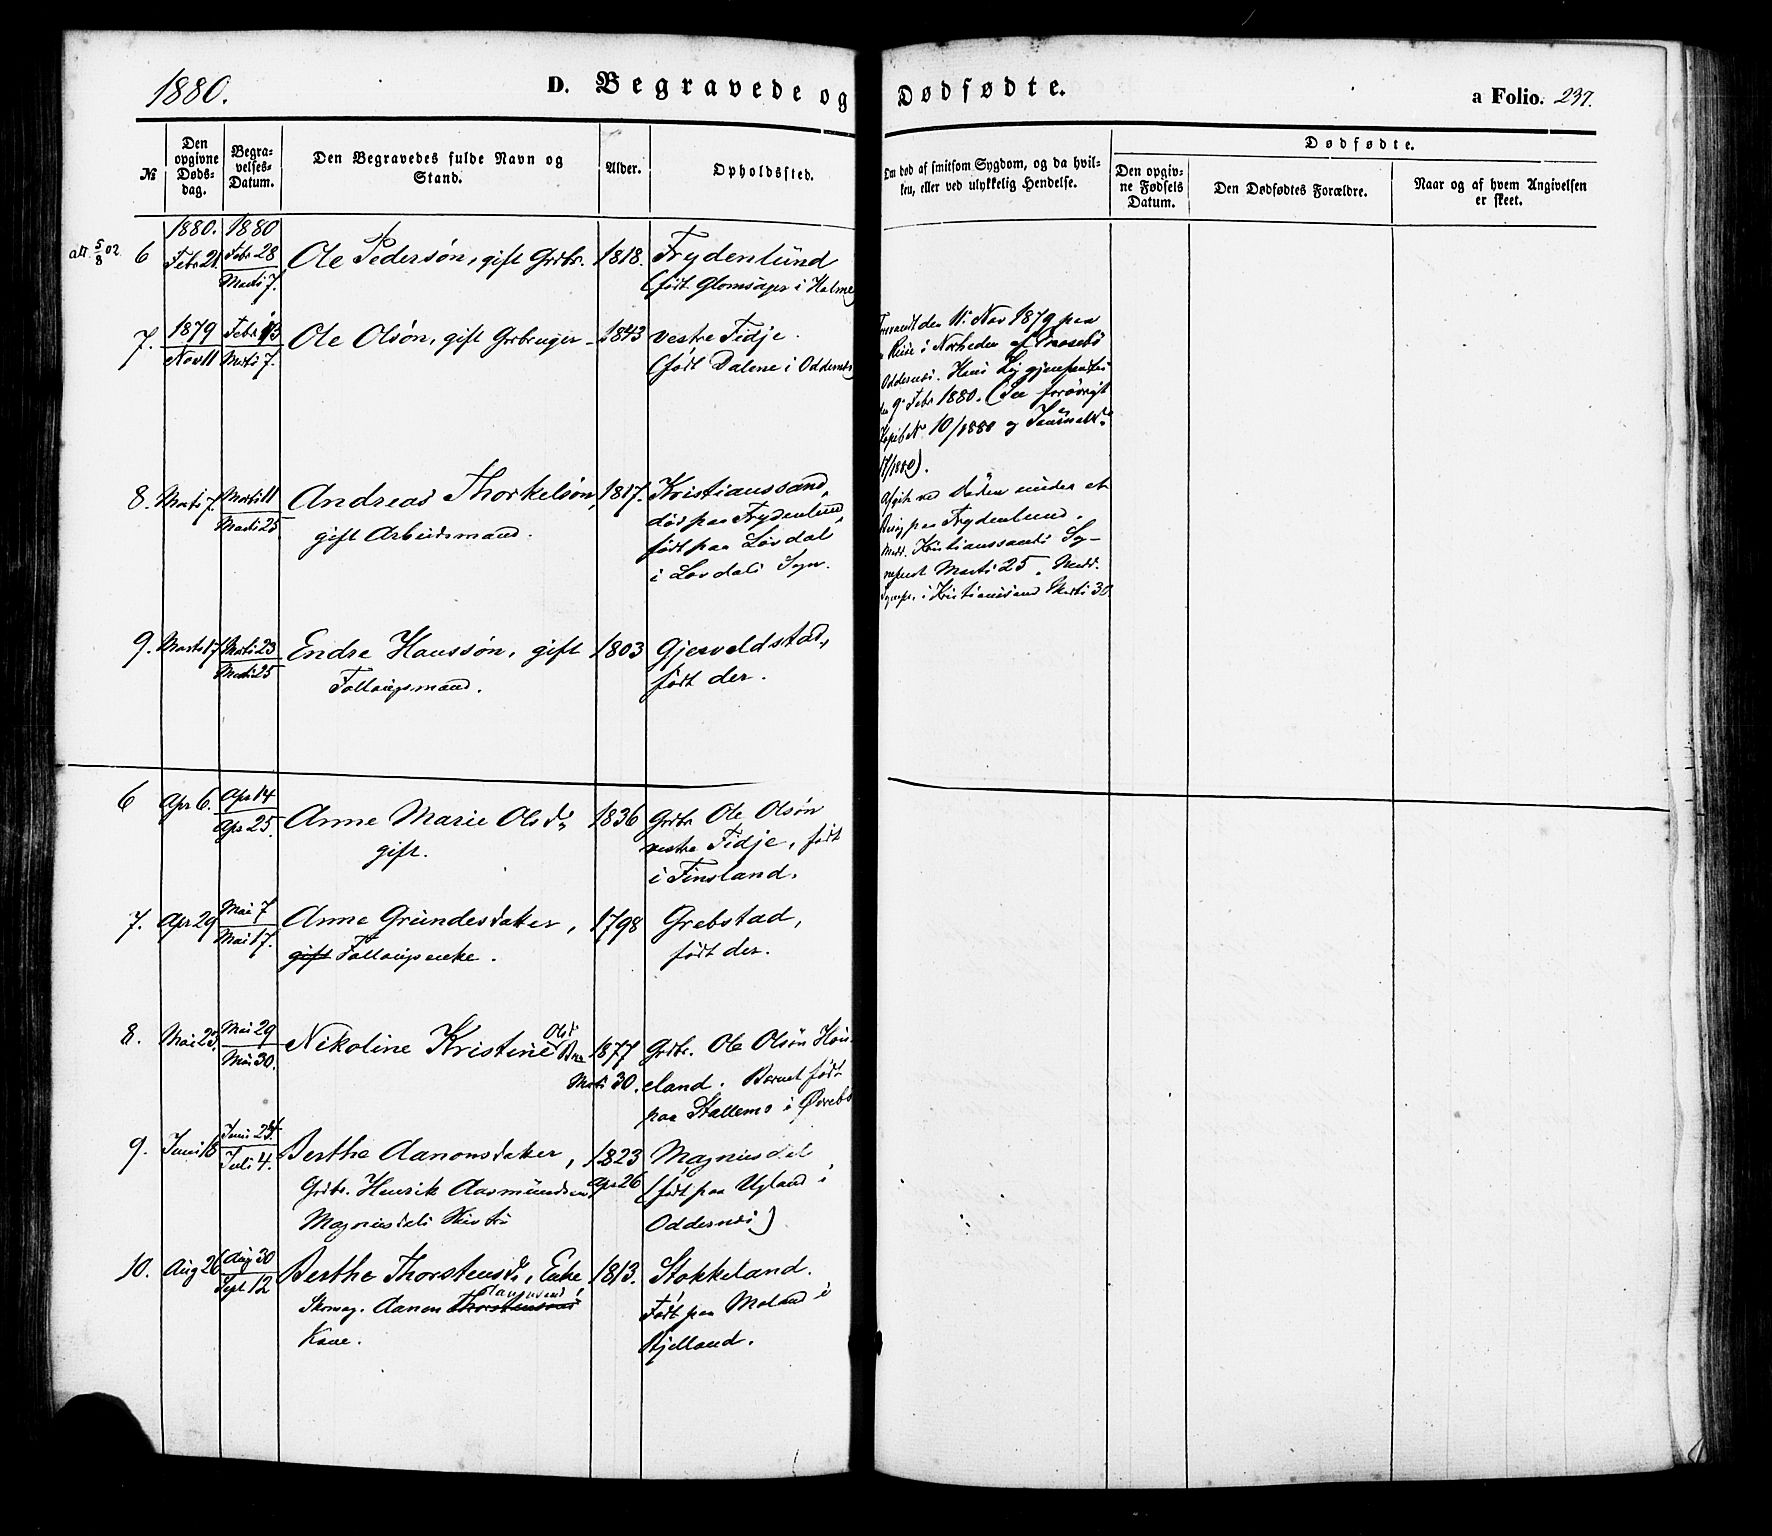 1880.
D. Begravede og Dødfødte.
a Folio. 237.
№
Den opgivne Dødsdag.
Begravelses-Datum.
Den Begravedes fulde Navn og Stand.
Alder.
Opholdssted.
Om død af smitsom Sygdom, og da hvilken, eller ved ulykkelig Hendelse.
Dødfødte.
Den opgivne Fødsels Datum.
Den Dødfødtes Forældre.
Naar og af hvem Angivelsen er skeet.
att. 5/8 02
6
1880. Febr 21.
1880 Febr 28
Marts 7.
Ole Pedersøn, gift Grdbr.
1818.
Frydenlund
(født Glomsager i Holme)
7.
1879
Nov 11
Febr 13
Marts 7.
Ole Olsøn, gift Grbruger
1843
vestre Fidje.
(født Dalene i Oddernæs)
den 11. Nov 1879 paa
Reise i Norheden af Mosebø
Oddernæs. Hans Lig gjenfandtes
den 9. Febr 1880. (See forøvrigt
Kopib. № 10/1880 og Journal №
17/1880).
8.
Marts 7.
Marts 11
Marts 25
Andreas Thorkelsøn,
gift Arbeidsmand.
1817.
Kristianssand,
død paa Frydenlund,
født paa Løvdal
i Løvdals Sogn.
Afgik ved Døden under et
Besøg paa Frydenlund.
Medd. Kristianssands Sog-
nepræst Marts 25. Medd.
Sognepr. i Kristianssand Marts 30
9.
Marts 17
Marts 23
Marts 25
Endre Hanssøn, gift
Follaugsmand.
1803
Gjervoldstad,
født der.
6
Apr 6.
Apr 14
Apr 25.
Anne Marie Olsd.
gift.
1836
Grdbr Ole Olsøn
vestre Fidje, født
i Finsland.
7.
Apr 29
Mai 7
Mai 17.
Anne Gundesdatter,
gift Follaugsenke.
1798
Grebstad,
født der.
8.
Mai 23.
Mai 29
Mai 30.
Nikoline Kristine Olsd. Barn
1877
Marts 30.
Grdbr. Ole Olsøn Hou-
eland. Barnet født
paa Stallemo i Øvrebø
9.
Juni 18
Juni 23.
Juli 4.
Berthe Aanonsdatter,
Grdbr. Henrik Aasmundsen
Magnusdals Hustru
1823
Apr 26
Magnusdal
(født paa Ugland i
Oddernæs)
10.
Aug 26
Aug 30
Sept 12
Berthe Thorstensd., Enke,
Skomag. Aanen Thorstensens
Kone.
1813.
Stokkeland.
Født paa Moland i
Hjelland.